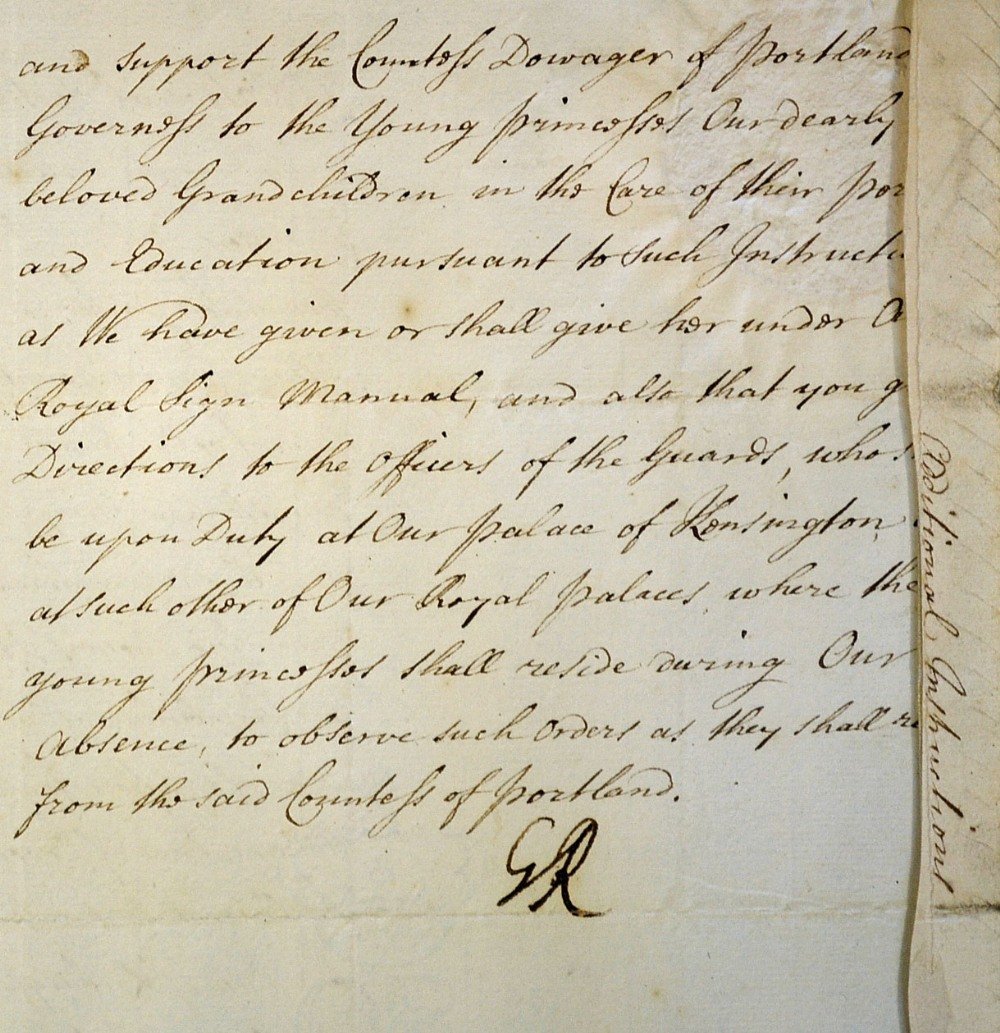 and support the Countess Dowager of Portland
Governess to the Young Princesses Our dearly
beloved Grandchildren in the Care of their Per
and Education pursuant to such Instructi
as We have given or shall give her under O
Royal Sign Manual, and also that you g
Directions to the Officers of the Guards, who s
be upon Duty at Our Palace of Kensington,
at such other of Our Royal Palaces, where the
young Princesses shall reside during Our
Absence, to observe such Orders as they shall re
from the said Countess of Portland.
GR
Additional Instructions